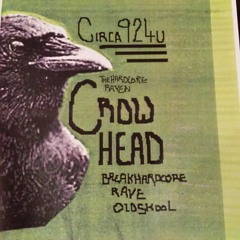 CIRCA 924U
THE HARDCORE
RAVEN
CROW
HEAD
BREAKHARDCORE
RAVE
OLDSKOOL